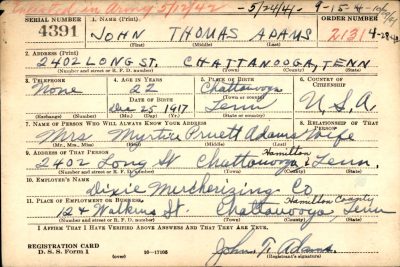 Enlisted in Army 5/12/42 - 5/24/41. 9-15-41
SERIAL NUMBER 1. NAME (Print) ORDER NUMBER
4391 JOHN THOMAS ADAMS 2131
(First) (Middle) (Last)
2. ADDRESS (Print)
2402 LONG ST. CHATTANOOGA, TENN
(Number and street or R. F. D. number) (Town) (County) (State)
3. TELEPHONE 4. AGE IN YEARS 5. PLACE OF BIRTH 6. COUNTRY OF CITIZENSHIP
None 22 Chattanooga
DATE OF BIRTH (Town or county)
Dec 25 1917 Tenn U.S.A.
(Exchange) (Number) (Mo.) (Day) (Yr.) (State or country)
7. NAME OF PERSON WHO WILL ALWAYS KNOW YOUR ADDRESS 8. RELATIONSHIP OF THAT PERSON
Mrs Myrtice Pruett Adams Wife
(Mr., Mrs., Miss) (First) (Middle) (Last)
9. ADDRESS OF THAT PERSON Hamilton
2402 Long St Chattanooga Tenn.
(Number and street or R. F. D. number) (Town) (County) (State)
10. EMPLOYER'S NAME
Dixie Mercherizing Co
11. PLACE OF EMPLOYMENT OR BUSINESS Hamilton County
124 Watkins St. Chattanooga Tenn
(Number and street or R. F. D. number) (Town) (County) (State)
I AFFIRM THAT I HAVE VERIFIED ABOVE ANSWERS AND THAT THEY ARE TRUE.
REGISTRATION CARD
D. S. S. Form 1 16-17105 John T. Adams
(Registrant's signature)